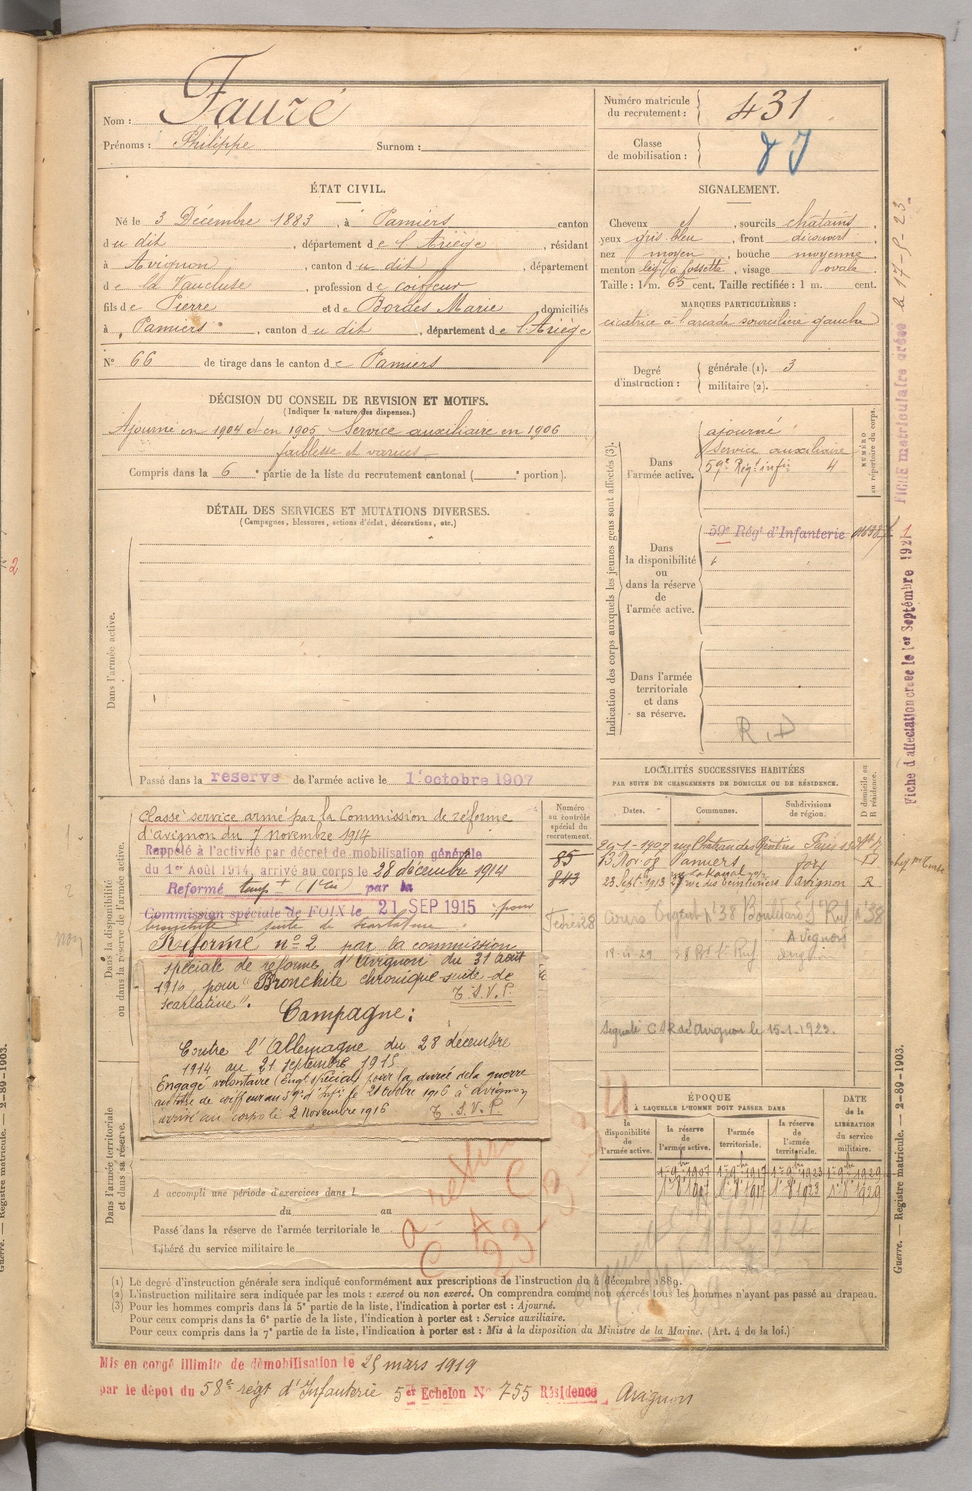 Nom : Fauré
Prénoms : Philippe Surnom :
Numéro matricule du recrutement : 431
Classe de mobilisation :
ÉTAT CIVIL.
Né le 3 Décembre 1883, à Pamiers canton
du dit, département de l'Ariège, résidant
à Avignon, canton du dit, département
de la Vaucluse, profession de coiffeur
fils de Pierre et de Bordes Marie domiciliés
à Pamiers, canton du dit, département de l'Ariège
N° 66 de tirage dans le canton de Pamiers
SIGNALEMENT.
Cheveux et, sourcils chatains,
yeux gris bleu, front découvert,
nez moyen, bouche moyenne,
menton à fossette, visage ovale
Taille : 1 m. 65 cent. Taille rectifiée : 1 m. cent.
MARQUES PARTICULIÈRES :
cicatrice à l'arcade sourcilière gauche
Degré d'instruction : générale (1). 3
militaire (2).
DÉCISION DU CONSEIL DE REVISION ET MOTIFS.
(Indiquer la nature des dispenses.)
Ajourné en 1904 et en 1905 Service auxiliaire en 1906
faiblesse et varices
Compris dans la 6e partie de la liste du recrutement cantonal ( e portion).
DÉTAIL DES SERVICES ET MUTATIONS DIVERSES.
(Campagnes, blessures, actions d'éclat, décorations, etc.)
Dans l'armée active.
Passé dans la réserve de l'armée active le 1 octobre 1907
Indication des corps auxquels les jeunes gens sont affectés (3).
NUMÉRO au répertoire du corps.
Dans l'armée active.
ajourné
Service auxiliaire
59e Régt infie 4
Dans la disponibilité ou dans la réserve de l'armée active.
59e Régt d'Infanterie
Dans l'armée territoriale et dans sa réserve.
R.D
FICHE matriculaire créée le 17-5-23
Fiche d'affectation créée le 1er Septembre 1921
Dans la disponibilité ou dans la réserve de l'armée active.
Classé service armé par la Commission de réforme
d'avignon du 7 novembre 1914
Rappelé à l'activité par décret de mobilisation générale
du 1er Août 1914, arrivé au corps le 28 décembre 1914
Reformé tempt par la
Commission spéciale de FOIX le 21 SEP 1915 pour
bronchite suite de scarlatine.
Réformé n° 2 par la commission
spéciale de réforme d'Avignon du 31 août
1916 pour "Bronchite chronique suite de
scarlatine". T.S.V.P.
Campagne :
Contre l'Allemagne du 28 décembre
1914 au 21 septembre 1915
Engagé volontaire (Engt spécial) pour la durée de la guerre
au titre de coiffeur au 59e d'Infie le 21 octobre 1916 à avignon
arrivé au corps le 2 novembre 1916 T.S.V.P.
LOCALITÉS SUCCESSIVES HABITÉES
PAR SUITE DE CHANGEMENTS DE DOMICILE OU DE RÉSIDENCE.
Numéro au contrôle spécial du recrutement.
Dates. Communes. Subdivisions de région. D domicile ou R résidence.
85
843
13 Nov 08 Pamiers Foix D
23 Sept 1913 Avignon R
Avignon
19-11-29
Signalé Avignon le 15-1-1922.
ÉPOQUE
À LAQUELLE L'HOMME DOIT PASSER DANS
la disponibilité de l'armée active. la réserve de l'armée active. l'armée territoriale. la réserve de l'armée territoriale.
DATE de la LIBÉRATION du service militaire.
1er 9bre 1907 1er 9bre 1917 1er 9bre 1923 1er 9bre 1929
Dans l'armée territoriale et dans sa réserve.
A accompli une période d'exercices dans l
du au
Passé dans la réserve de l'armée territoriale le
Libéré du service militaire le
(1) Le degré d'instruction générale sera indiqué conformément aux prescriptions de l'instruction du 4 décembre 1889.
(2) L'instruction militaire sera indiquée par les mots : exercé ou non exercé. On comprendra comme non exercés tous les hommes n'ayant pas passé au drapeau.
(3) Pour les hommes compris dans la 5e partie de la liste, l'indication à porter est : Ajourné.
Pour ceux compris dans la 6e partie de la liste, l'indication à porter est : Service auxiliaire.
Pour ceux compris dans la 7e partie de la liste, l'indication à porter est : Mis à la disposition du Ministre de la Marine. (Art. 4 de la loi.)
Mis en congé illimité de démobilisation le 25 mars 1919
par le dépôt du 58e régt d'Infanterie 5er Echelon N° 755 Résidence Avignon
Guerre. — Registre matricule. — 2-89-1903.